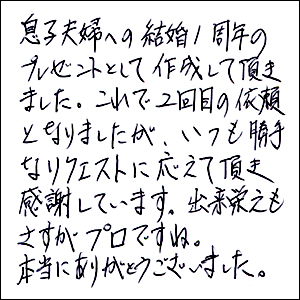 息子夫婦への結婚1周年の
プレゼントとして作成して頂き
ました。これで2回目の依頼
となりましたが、いつも勝手
なリクエストに応えて頂き
感謝しています。出来栄えも
さすがプロですね。
本当にありがとうございました。